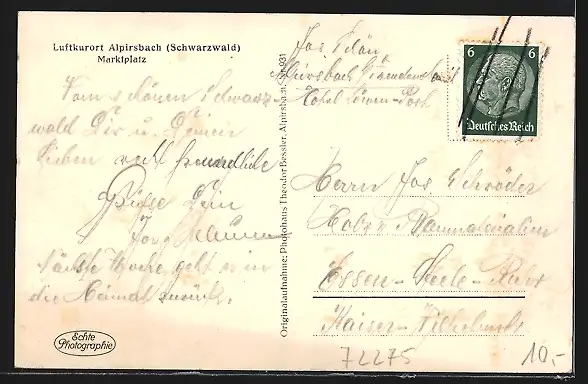 Luftkurort Alpirsbach (Schwarzwald)
Marktplatz
Vom schönen Schwarz-
wald Dir u. Deinen
Lieben recht freundliche
Grüße Dein
Jos
nächste Woche geht es in
die Heimat zurück.
Echte
Photographie
Originalaufnahme: Photohaus Theodor Bessler, Alpirsba
Jos
Hotel Löwen-Post
6 6
Deutsches Reich
Herrn Jos Schröder
Holz u Baumaterialien
Essen-Steele-Ruhr
Kaiser-Wilhelmstr
72275
10.-